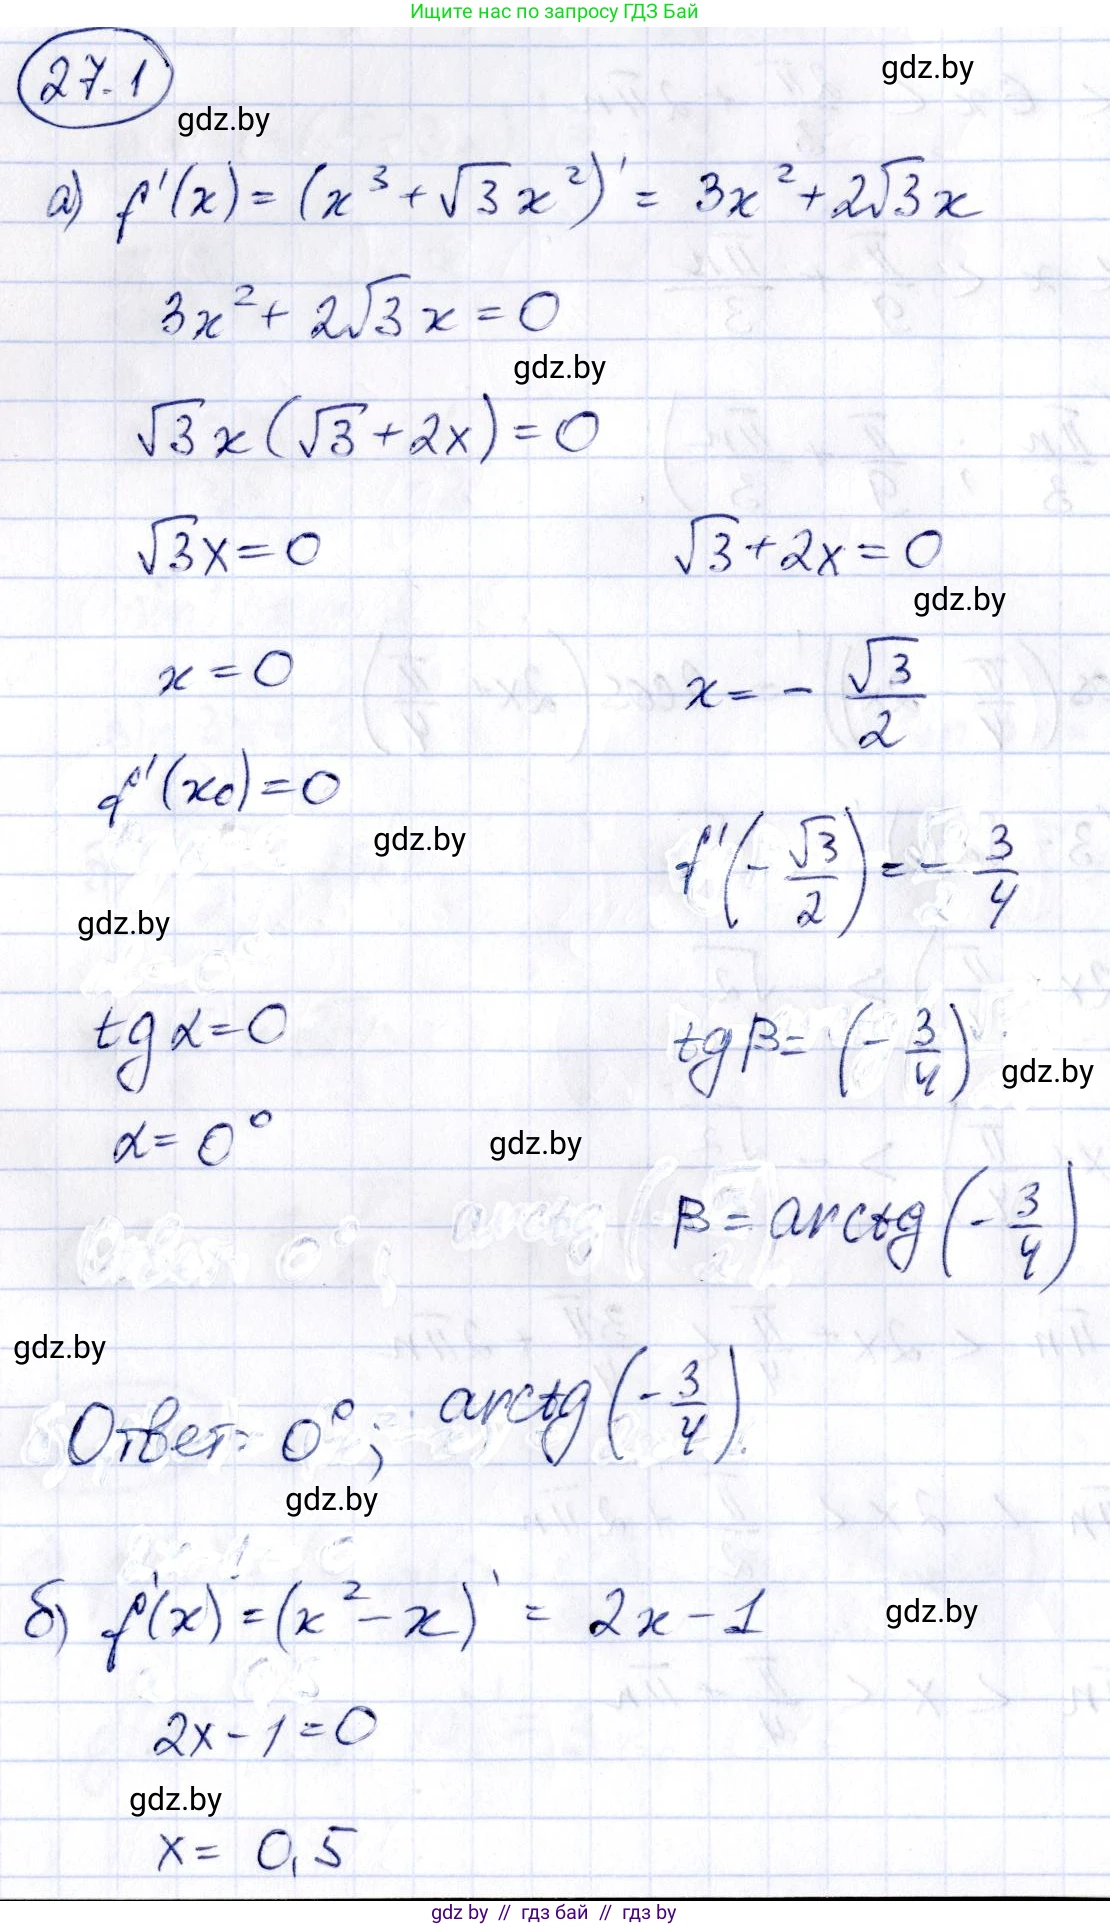 Ищите нас по запросу ГДЗ Бай
27.1
gdz.by
gdz.by
а) f'(x) = (x³ + √3x²)' = 3x² + 2√3x
3x² + 2√3x = 0
gdz.by
√3x(√3 + 2x) = 0
√3x = 0 √3 + 2x = 0
gdz.by
x = 0 x = - √3/2
f'(x₀) = 0
gdz.by
f'(-√3/2) = - 3/4
gdz.by
tg α = 0 tg β = (-3/4)
gdz.by
α = 0°
gdz.by
β = arctg(-3/4)
gdz.by
Ответ: 0°; arctg(-3/4).
gdz.by
б) f'(x) = (x² - x)' = 2x - 1
gdz.by
2x - 1 = 0
gdz.by
x = 0,5
gdz by // гдз бай // гдз by